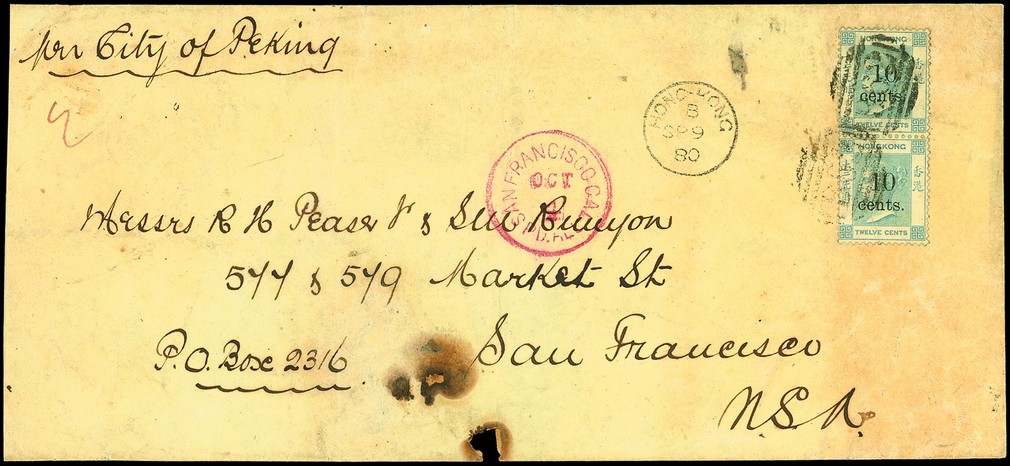 per City of Peking
HONG-KONG
B
SP 9
80
SAN FRANCISCO CAL.
OCT
PD. ALL
HONGKONG
香港
10
cents.
TWELVE CENTS
HONGKONG
香港
10
cents.
TWELVE CENTS
Messrs R H Pease Jr &
577 & 579 Market St
San Francisco
P.O. Box 2316
U.S.A.